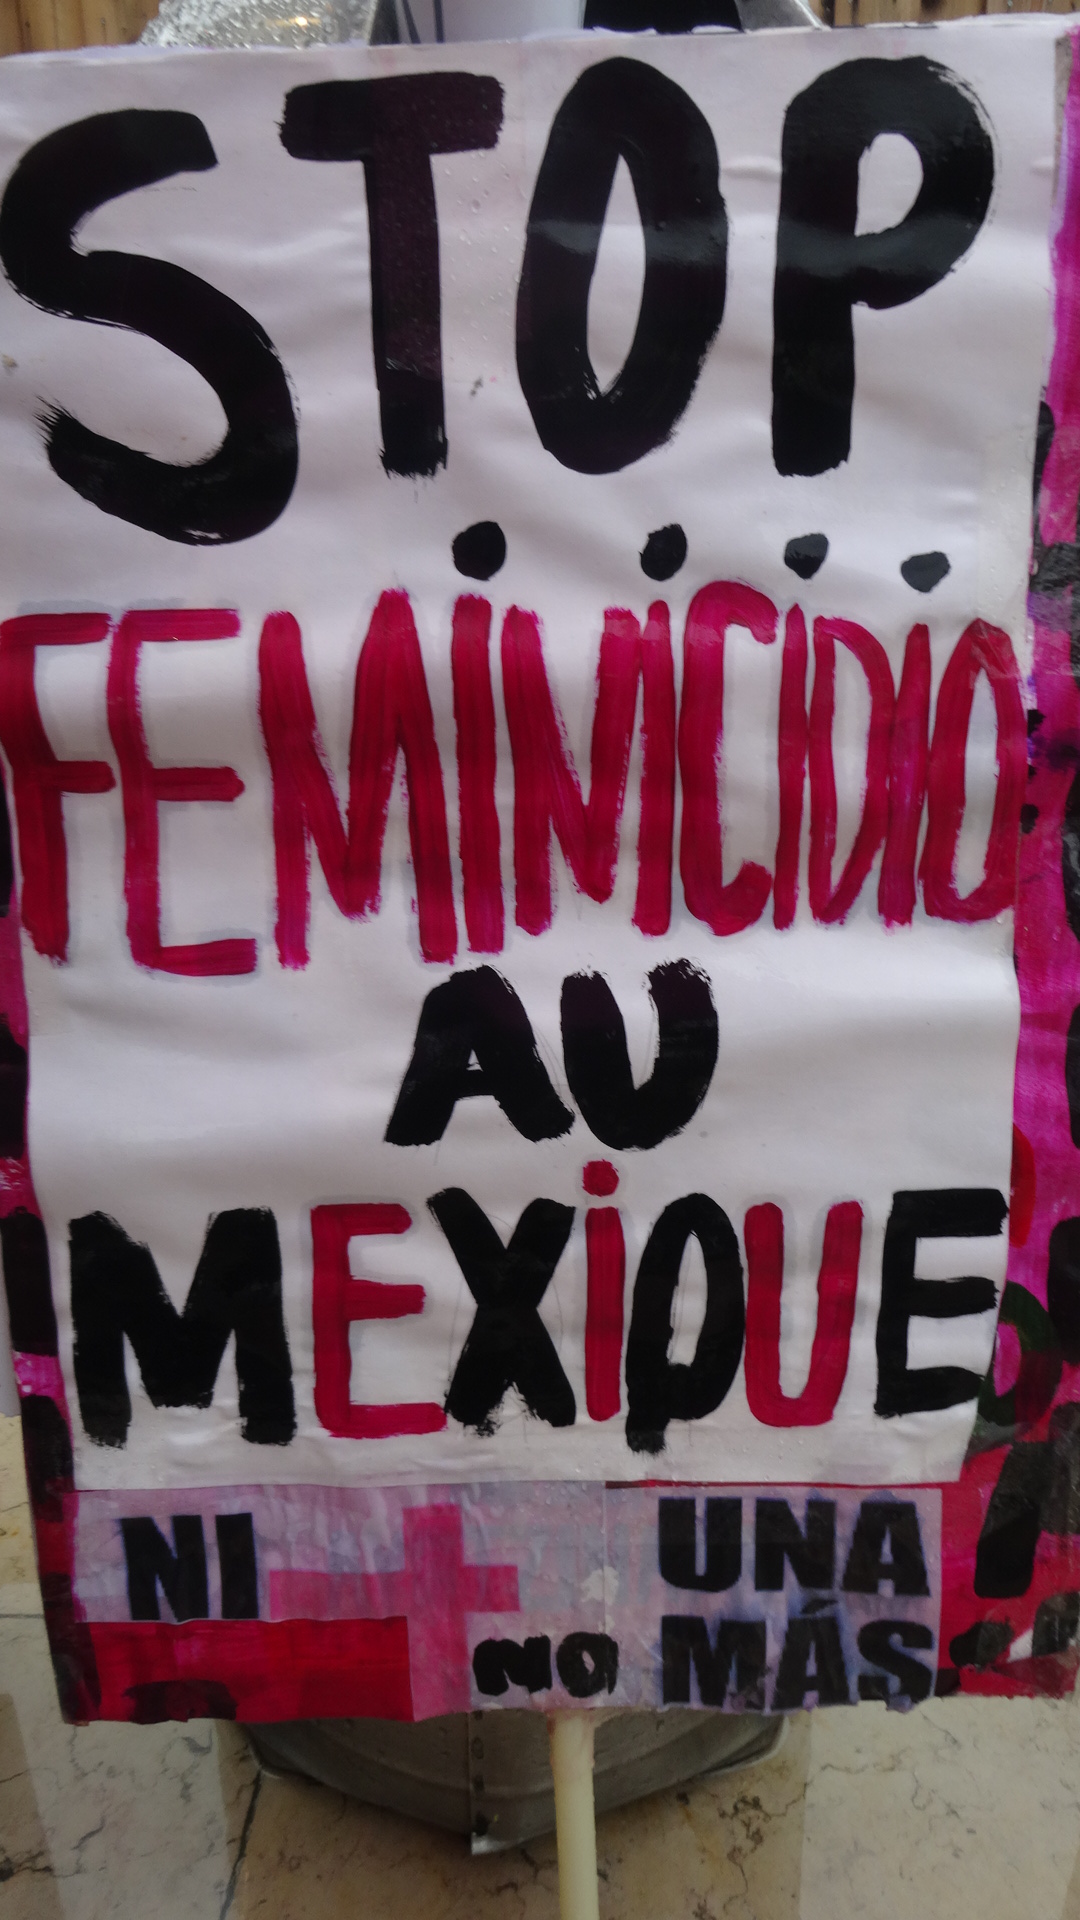 STOP
FEMINICIDIO
AU
MEXiQUE
NI UNA
NO MÁS